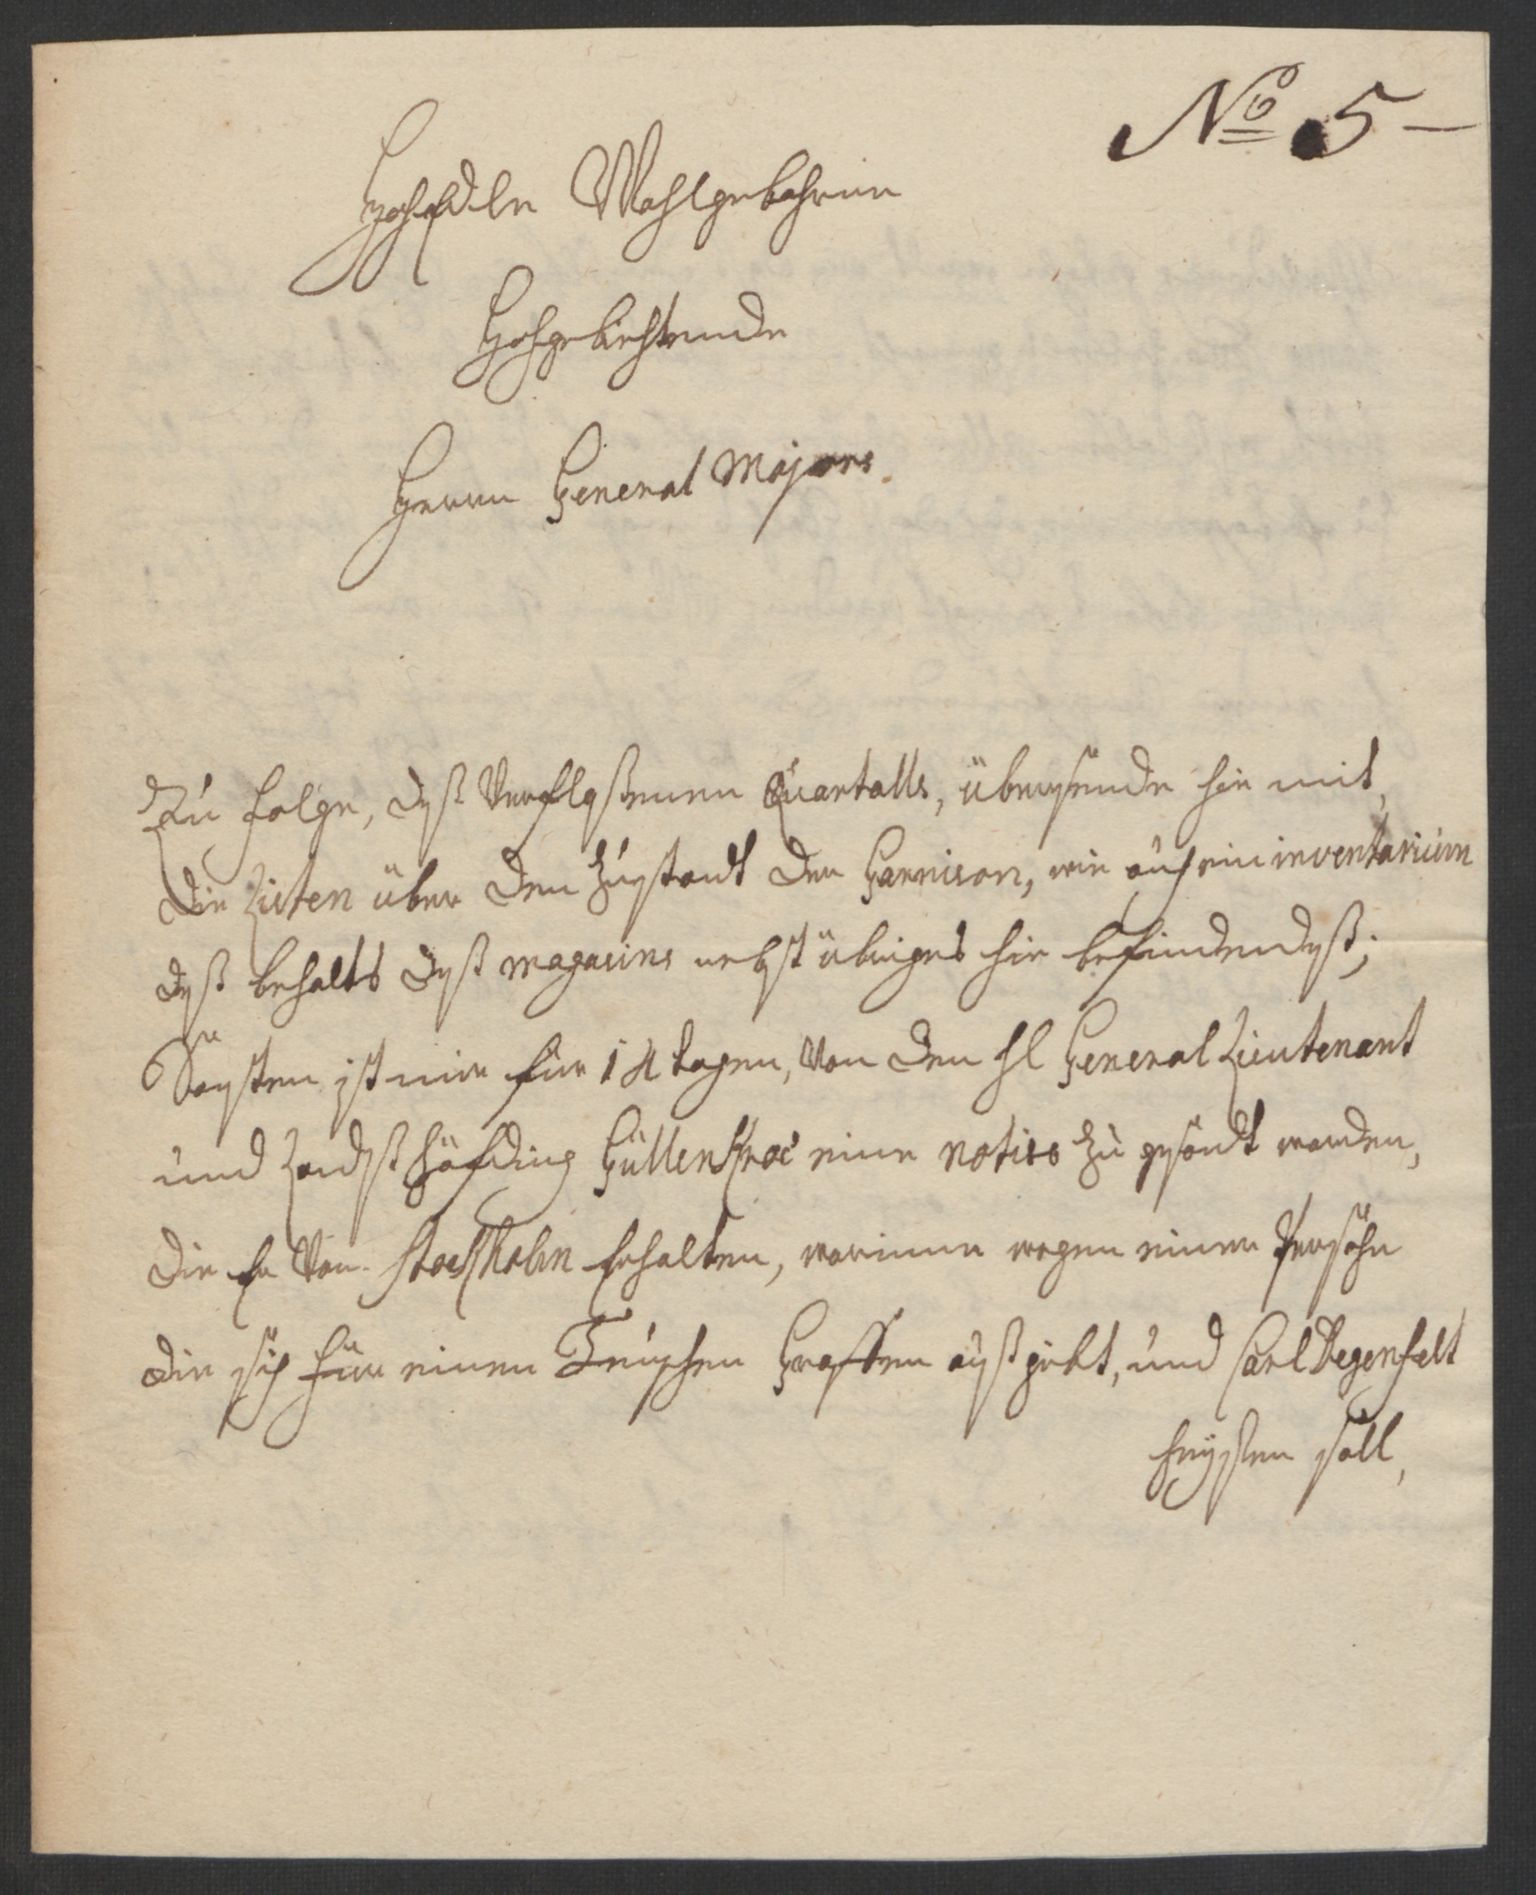 No 5 -
HochEdle Wohlgebohrne
Hochgebiehtende
Herrn General Majors.
Zu folge, deß Verfloßenen Quartalls, übersende hie mit,
die Listen über den Zustandt der Garnison, wie auch ein inventarium
deß behalts deß magasins nebst übriges hie befindendeß;
Sonsten ist mir für 14 tagen, Von den Hl General Lieutenant
und Landßhöfding Güllenkroc eine notiss zu gesandt worden,
die Er Von Stockholm Erhalten, worinne wegen einer Persohn
die sich für einen Teuschen Graffen außgiebt, und Carl Degenfelt
heyßen soll,